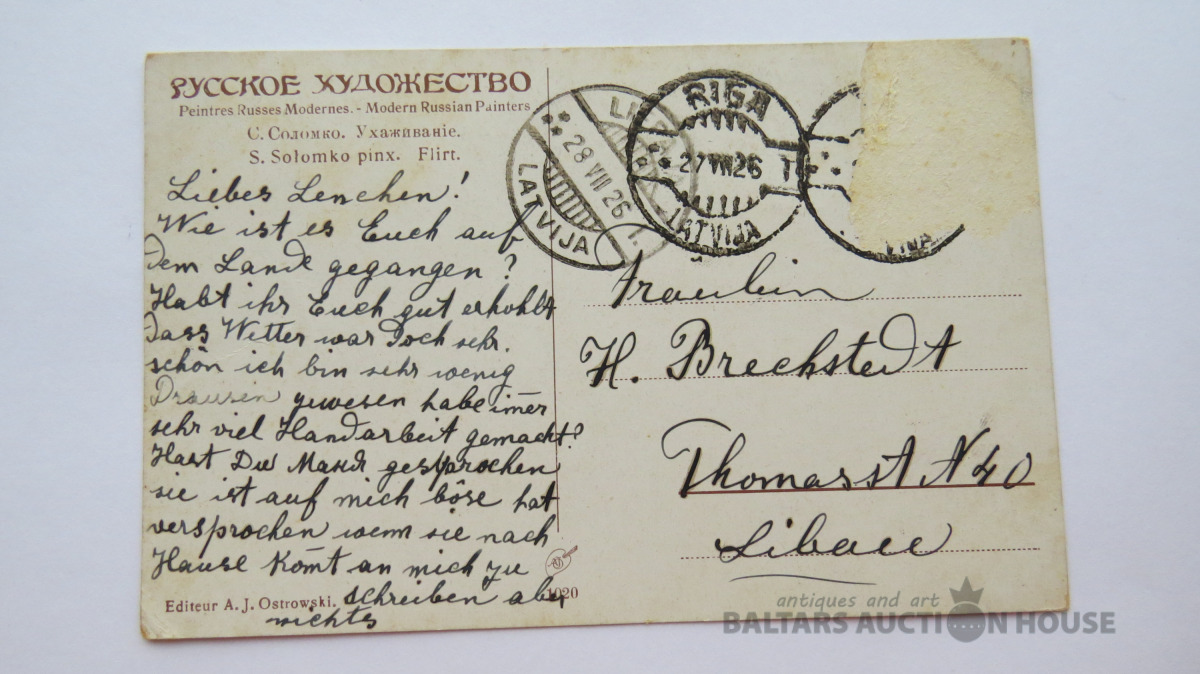 РУССКОЕ ХУДОЖЕСТВО
Peintres Russes Modernes. - Modern Russian Painters
С. Соломко. Ухаживанiе.
S. Solomko pinx. Flirt.
Liebes Lenchen!
Wie ist es Euch auf
dem Lande gegangen?
Habt ihr Euch gut erhohlt
Dass Witter war Doch sehr.
schön ich bin sehr wenig
Drausen gewesen habe im̄er
sehr viel Handarbeit gemacht?
Hast Du Маня gesprochen
sie ist auf mich böse hat
versprochen wenn sie nach
Hause Kom̄t an mich zu
schreiben aber
nichts
Editeur A. J. Ostrowski.
1020
28 VII 26
LATVIJA
RIGA
27 VII 26
LATVIJA
Fräulein
H. Brechstedt
Thomasst N 40
Libau
antiques and art
BALTARS AUCTION HOUSE